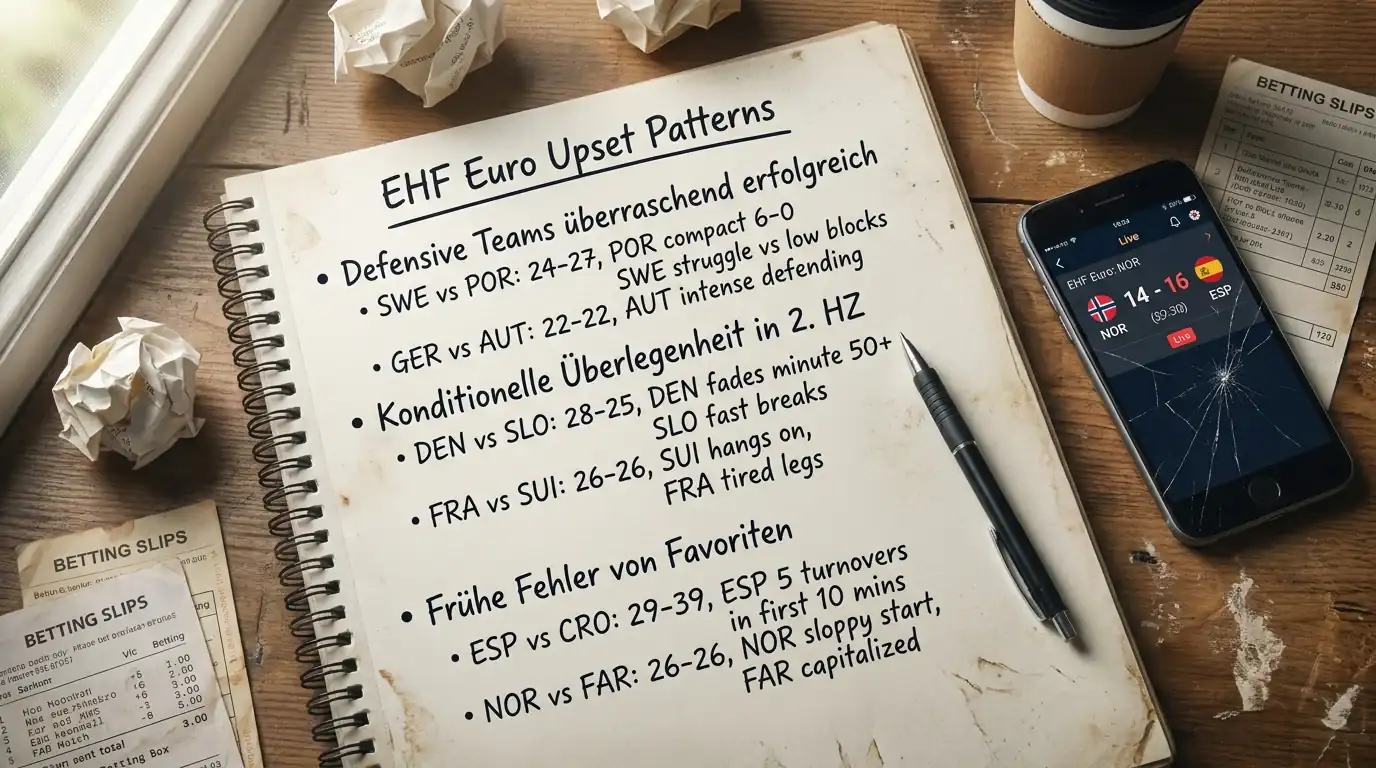 EHF Euro Upset Patterns
• Defensive Teams überraschend erfolgreich
• SWE vs POR: 24–27, POR compact 6–0
SWE struggle vs low blocks
• GER vs AUT: 22–22, AUT intense defending
• Konditionelle Überlegenheit in 2. HZ
• DEN vs SLO: 28–25, DEN fades minute 50+
SLO fast breaks
• FRA vs SUI: 26–26, SUI hangs on,
FRA tired legs
• Frühe Fehler von Favoriten
• ESP vs CRO: 29–39, ESP 5 turnovers
in first 10 mins
• NOR vs FAR: 26–26, NOR sloppy start,
FAR capitalized
Live
EHF Euro: NOR
14 - 16
NOR
ESP
Live
BETTING SLIPS
2.20 2
120
BETTING SLIPS
BETTING SLIPS
Vic Betting
1.00
2.00
3.00
3.00
5.00
3.00